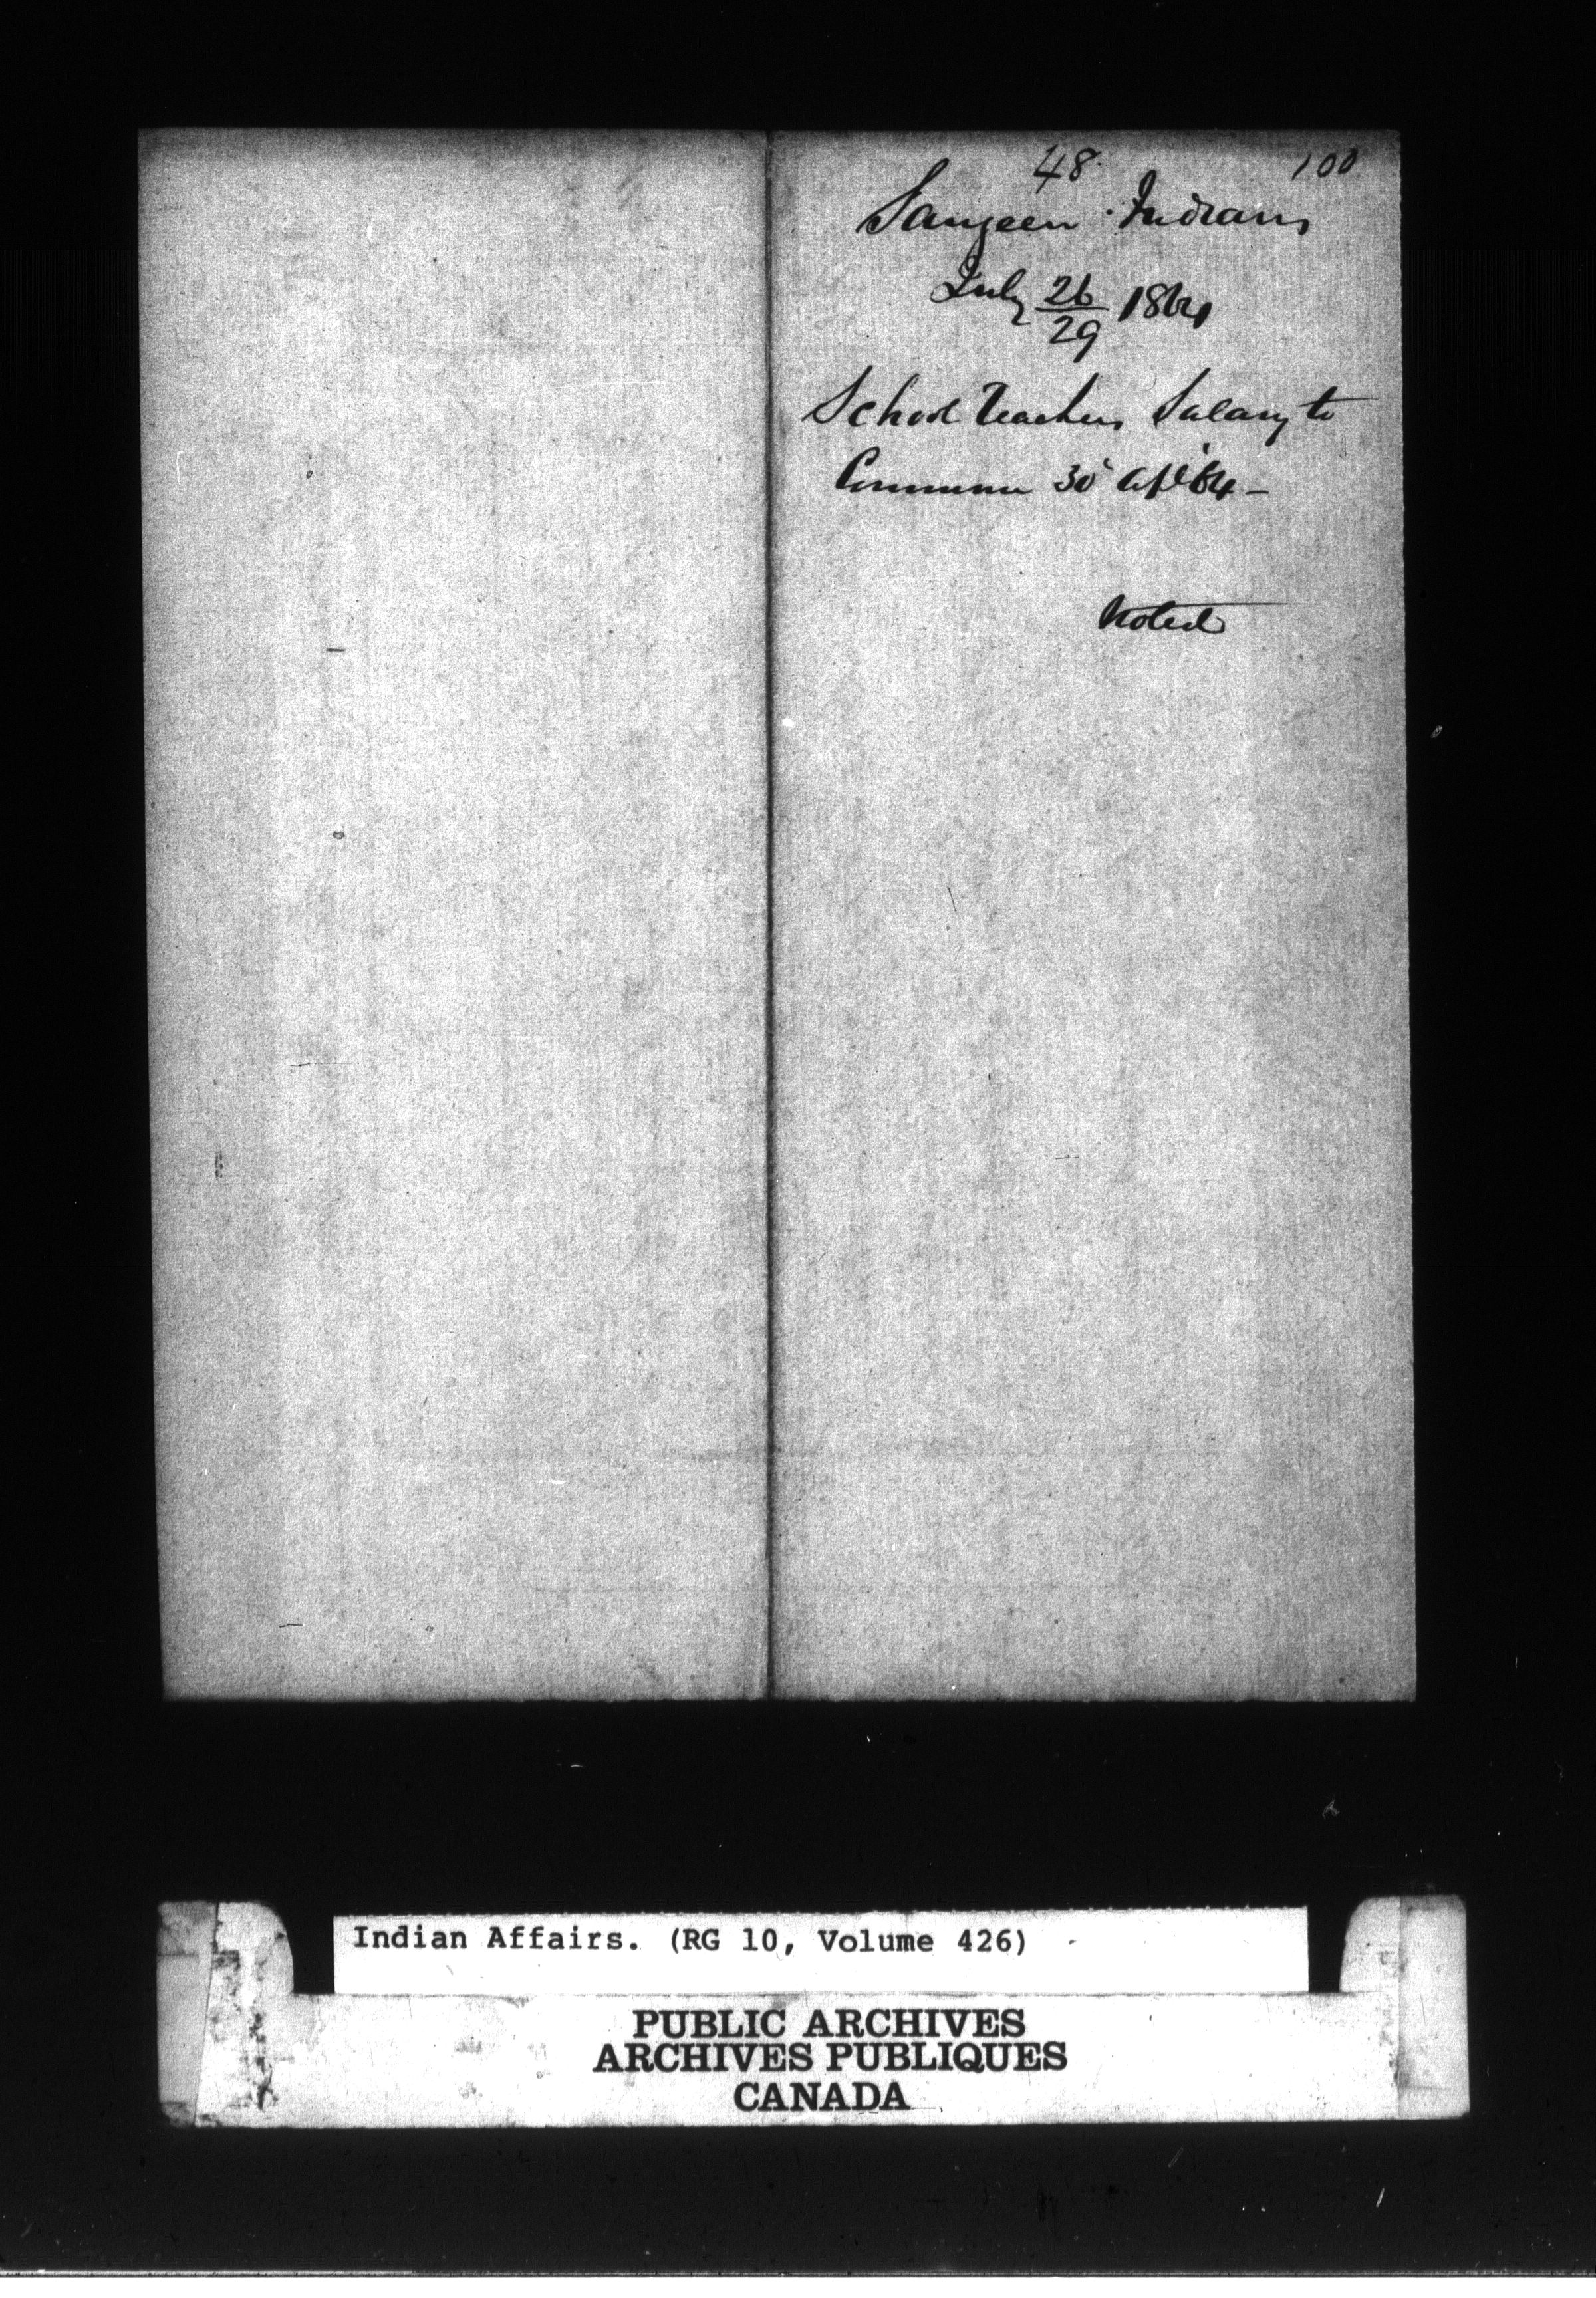 48. 100
Saugeen Indians
July 26/29 1864
School Teachers Salary to
Commence 30 Apl 64 –
Noted
Indian Affairs. (RG 10, Volume 426)
PUBLIC ARCHIVES
ARCHIVES PUBLIQUES
CANADA